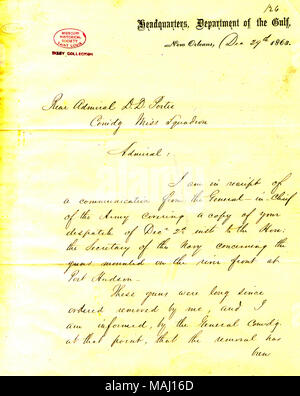 126
MISSOURI
HISTORICAL
SOCIETY
SAINT LOUIS
BIXBY COLLECTION
Headquarters, Department of the Gulf,
New Orleans, Dec 29th 1863.
Rear Admiral D. D. Porter
Comdg Miss Squadron
Admiral:
I am in receipt of
a communication from the General-in-Chief
of the Army covering a copy of your
despatch of Dec 2d inst to the Hon:
the Secretary of the Navy concerning the
guns mounted on the river front at
Port Hudson.
These guns were long since
ordered removed by me, and I
am informed, by the General Comdg.
at that point, that the removal has
been
alamy
Image ID: MAJ16D
www.alamy.com